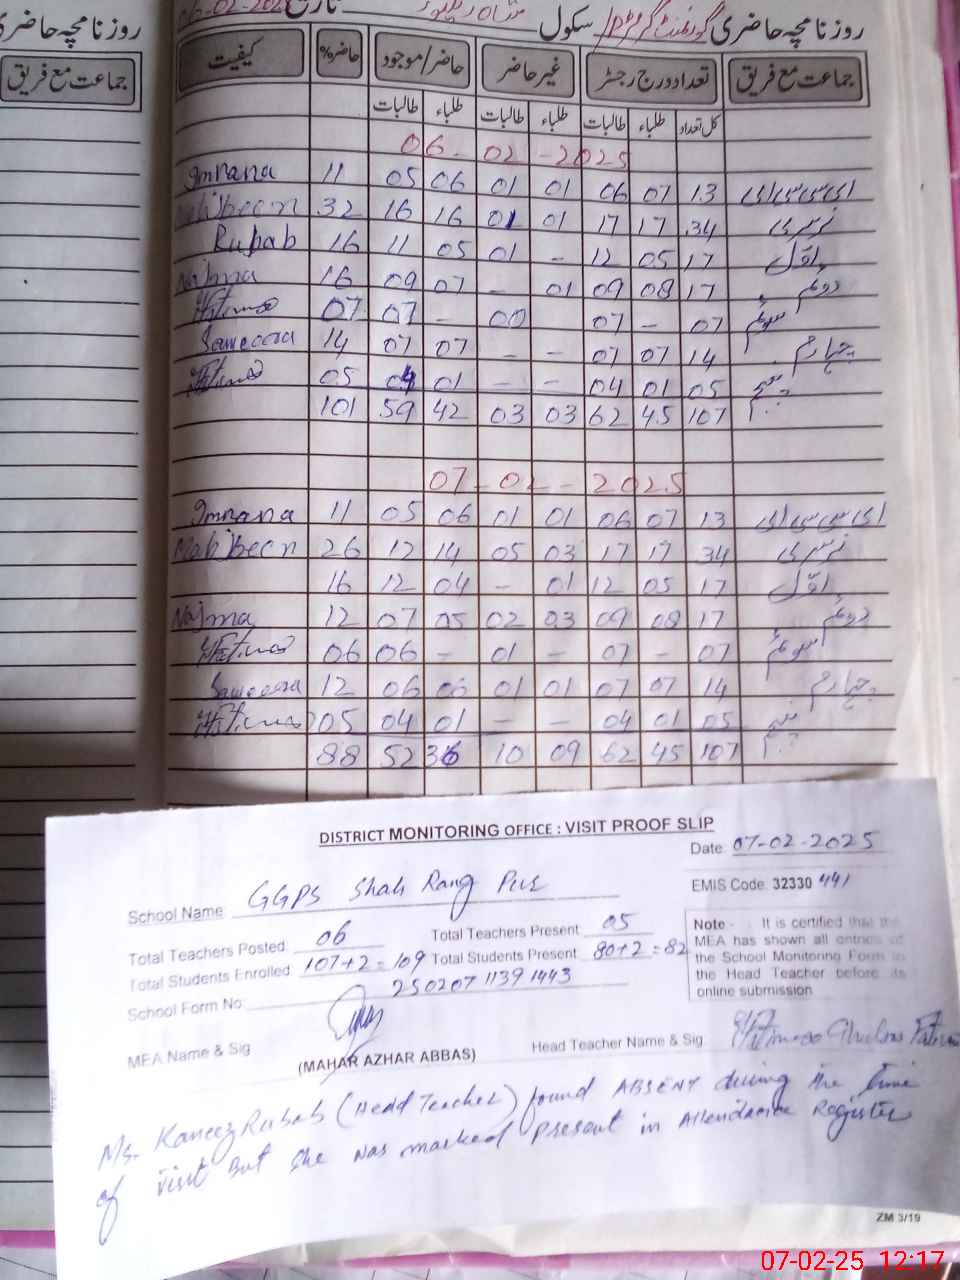 روزنامچہ حاضری گورنمنٹ گرلز سکول تاریخ 06-02-2025
جماعت مع فریق تعداد درج رجسٹر غیر حاضر حاضر/موجود حاضر% کیفیت
کل تعداد طلباء طالبات طلباء طالبات طلباء طالبات
06-02-2025
Imrana 11 05 06 01 01 06 07 13 ای سی سی ای
Mahjbeen 32 16 16 01 01 17 17 34 نرسری
Rubab 16 11 05 01 - 12 05 17 اوّل
Najma 16 09 07 - 01 09 08 17 دوئم
07 07 - 00 07 - 07 سوئم
Sameera 14 07 07 - - 07 07 14 چہارم
05 04 01 - - 04 01 05 پنجم
101 59 42 03 03 62 45 107
07-02-2025
Imrana 11 05 06 01 01 06 07 13 ای سی سی ای
Mahjbeen 26 12 14 05 03 17 17 34 نرسری
16 12 04 - 01 12 05 17 اوّل
Najma 12 07 05 02 03 09 08 17 دوئم
06 06 - 01 - 07 - 07 سوئم
Sameera 12 06 06 01 01 07 07 14 چہارم
05 04 01 - - 04 01 05 پنجم
88 52 36 10 09 62 45 107
روزنامچہ حاضری
جماعت مع فریق
DISTRICT MONITORING OFFICE : VISIT PROOF SLIP
Date: 07-02-2025
School Name GGPS Shah Rang Pur
EMIS Code: 32330 441
Total Teachers Posted 06 Total Teachers Present 05
Total Students Enrolled 107+2=109 Total Students Present 80+2=82
School Form No: 250207 1139 1443
Note - It is certified that the
MEA has shown all entries of
the School Monitoring Form to
the Head Teacher before its
online submission
MEA Name & Sig
(MAHAR AZHAR ABBAS)
Head Teacher Name & Sig
Ms. Kaneez Rubab (Head Teacher) found ABSENT during the time
of visit But she was marked Present in Attendance Register
ZM 3/19
07-02-25 12:17